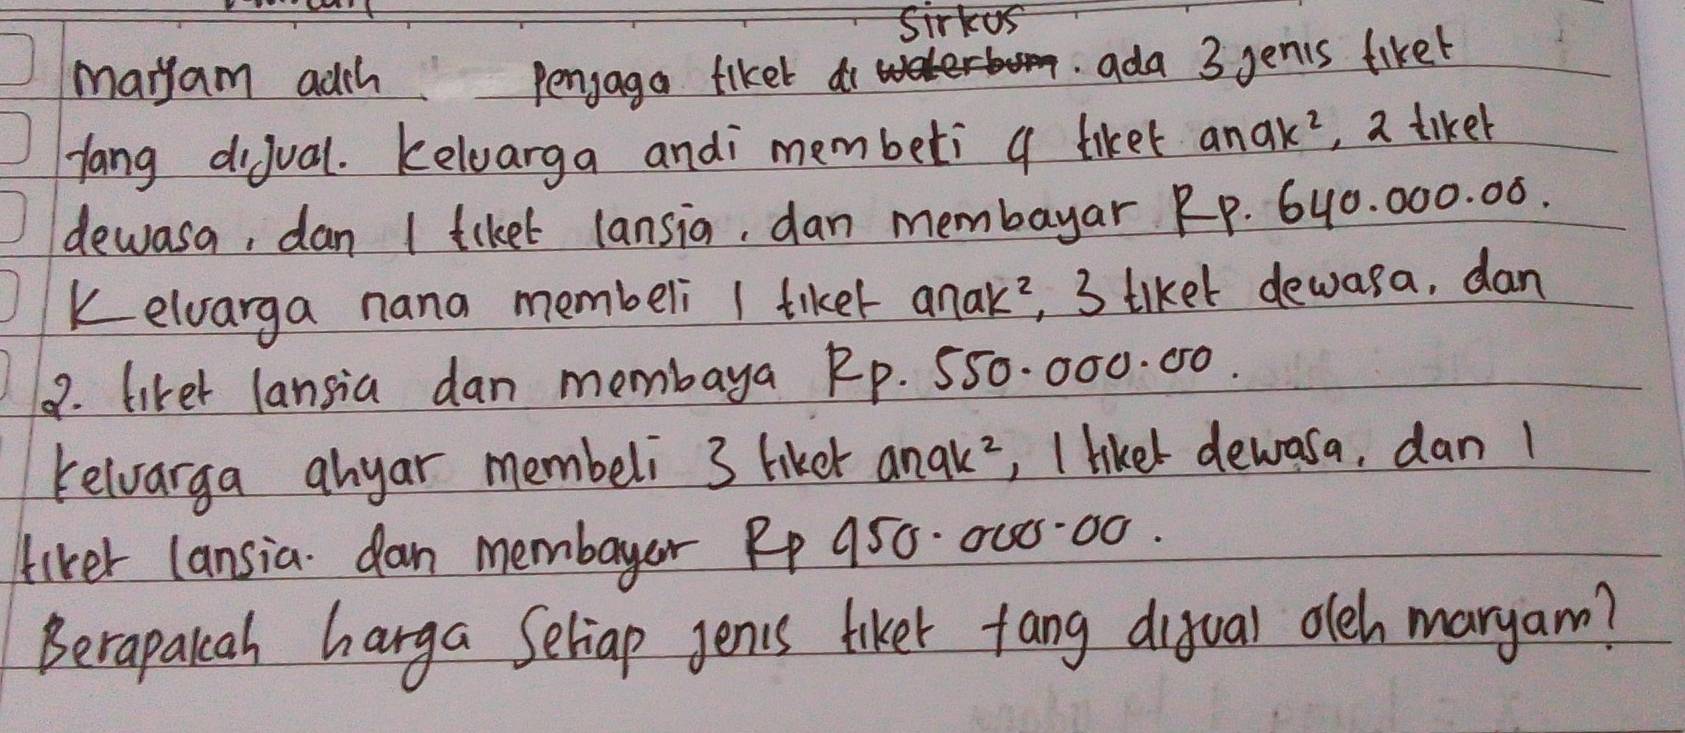 Sirkus
maryam adlh penjaga tiket di waterbum. ada 3 jenis tiket
yang dijual. keluarga andi membeli 4 tiket anak², 2 tiket
dewasa, dan 1 tiket lansia, dan membayar Rp. 640.000.00.
Keluarga nana membeli 1 tiket anak², 3 tiket dewasa, dan
2. tiket lansia dan membaya Rp. 550.000.00.
keluarga ahyar membeli 3 tiket anak², 1 tiket dewasa, dan 1
tiket lansia. dan membayar Rp 450.000.00.
Berapakah harga Setiap jenis tiket yang dijual oleh maryam?